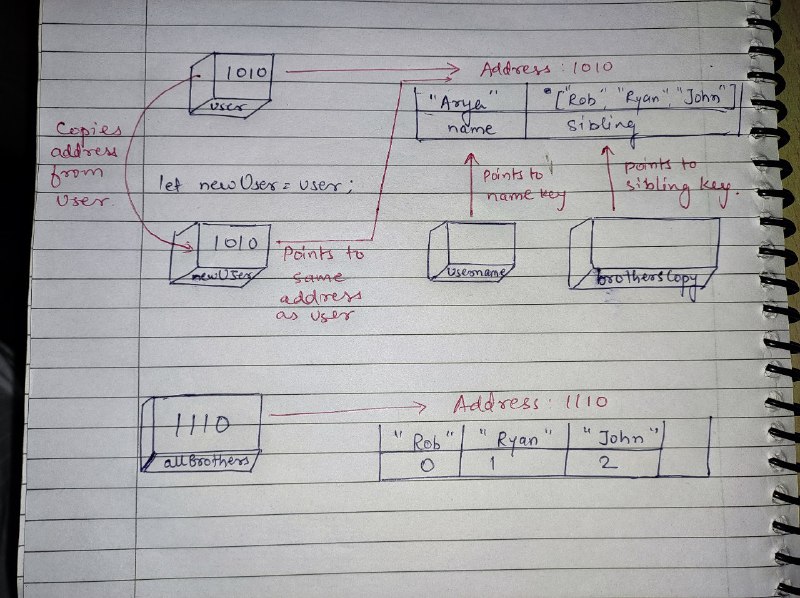 1010
Address : 1010
user
"Arya" ["Rob", "Ryan", "John"]
name sibling
Copies
address
from
user.
let newUser = user;
points to
name key
points to
sibling key.
1010
newUser
Points to
same
address
as user
username
brothersCopy
1110
allBrothers
Address : 1110
"Rob" "Ryan" "John"
0 1 2